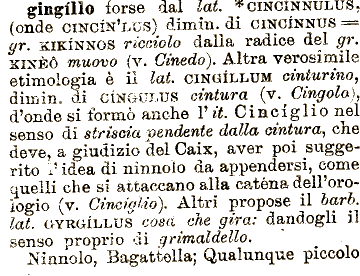 gingíllo forse dal lat. *CINCINNULUS,
(onde CINCÍN'LUS) dimin. di CINCÍNNUS =
gr. KIKÍNNOS ricciolo dalla radice del gr.
KINÊÔ muovo (v. Cinedo). Altra verosimile
etimologia è il lat. CINGÍLLUM cinturino,
dimin. di CÍNGULUS cintura (v. Cingolo),
d'onde si formò anche l'it. Cinciglio nel
senso di striscia pendente dalla cintura, che
deve, a giudizio del Caix, aver poi sugge-
rito l'idea di ninnolo da appendersi, come
quelli che si attaccano alla caténa dell'oro-
logio (v. Cinciglio). Altri propose il barb.
lat. GYRGÍLLUS cosa che gira: dandogli il
senso proprio di grimaldello.
Ninnolo, Bagattella; Qualunque piccolo